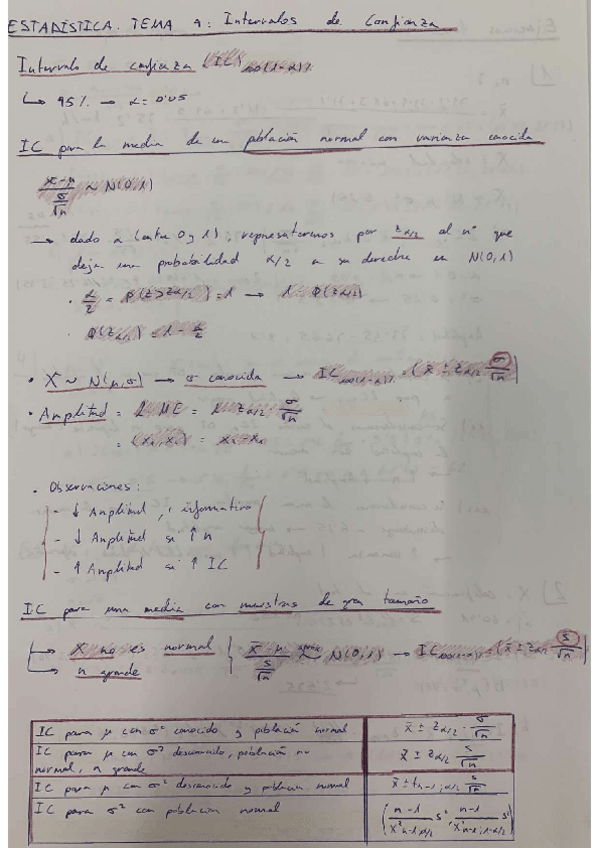 ESTADÍSTICA. TEMA 9: Intervalos de Confianza
Intervalo de confianza (IC)100(1-α)%
↳ 95% → α = 0'05
IC para la media de una población normal con varianza conocida
(x̄-μ)/(σ/√n) ~ N(0,1)
→ dado α (entre 0 y 1), representamos por z α/2 al nº que
deja una probabilidad α/2 a su derecha en N(0,1)
· α/2 = P(Z>zα/2) = 1 → 1 - Φ(zα/2)
· Φ(zα/2) = 1 - α/2
• X ~ N(μ,σ) → σ conocida → IC100(1-α)% (x̄ ± zα/2 σ/√n)
• Amplitud = 2·ME = 2 zα/2 σ/√n
= (x1,x2) = x2-x1
• Observaciones:
- ↓ Amplitud, informativo
- ↓ Amplitud si ↑ n
- ↑ Amplitud si ↑ IC
IC para una media con muestras de gran tamaño
↳ X no es normal
↳ n grande
(x̄-μ)/(s/√n) aprox ~ N(0,1) → IC100(1-α)% (x̄ ± zα/2 s/√n)
IC para μ con σ² conocido y población normal x̄ ± zα/2 · σ/√n
IC para μ con σ² desconocido, población no
normal, n grande x̄ ± zα/2 s/√n
IC para μ con σ² desconocido y población normal x̄ ± tn-1;α/2 s/√n
IC para σ² con población normal ((n-1)/(χ²n-1;α/2) s², (n-1)/(χ²n-1;1-α/2) s²)